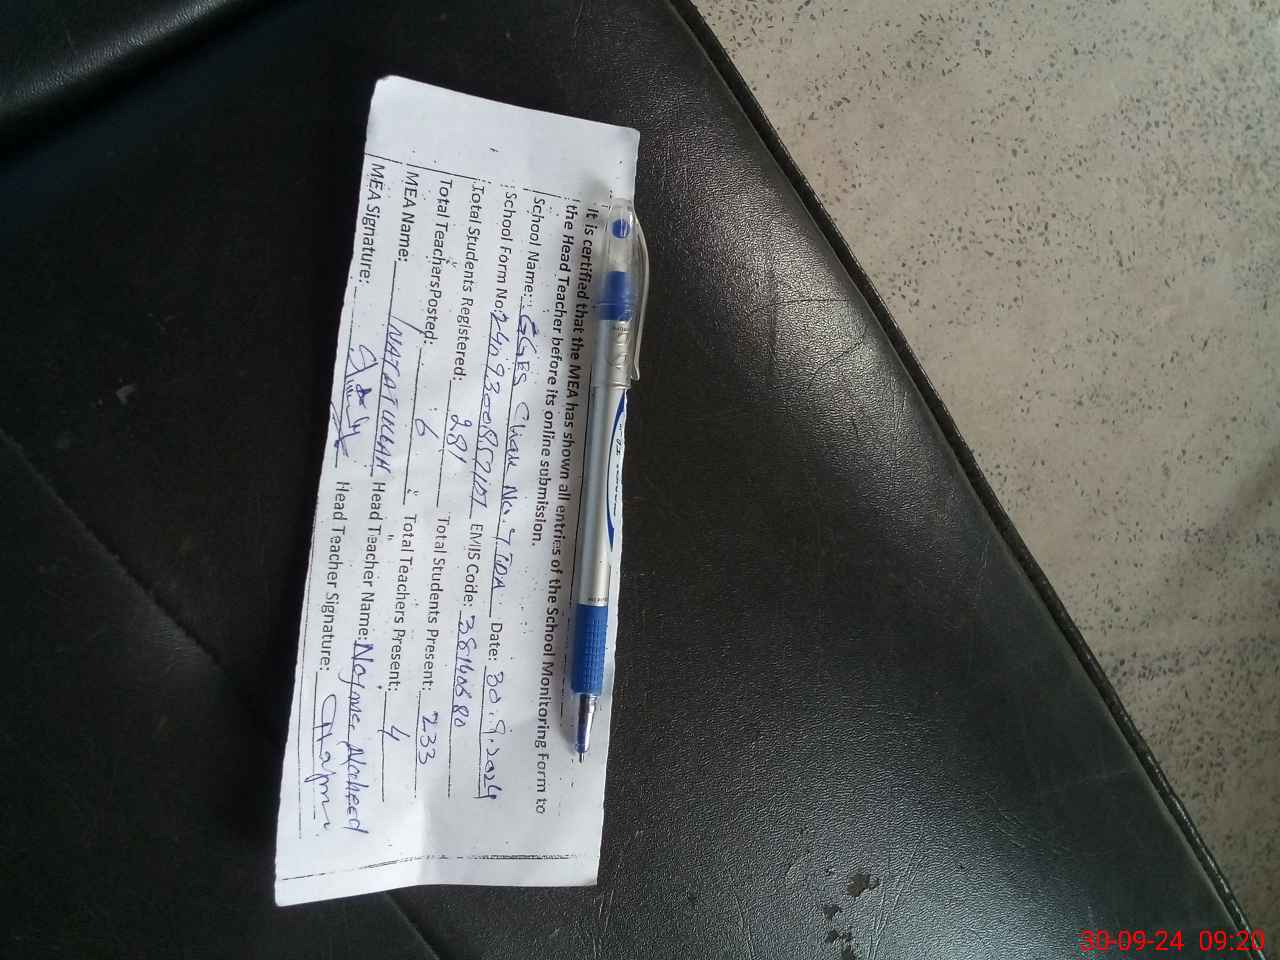 It is certified that the MEA has shown all entries of the School Monitoring Form to
the Head Teacher before its online submission.
School Name: GGES Chak No. 4 TDA Date: 30.9.2024
School Form No: EMIS Code: 38140680
Total Students Registered: 281 Total Students Present: 233
Total Teachers Posted: 6 Total Teachers Present: 4
MEA Name: Head Teacher Name: Najma
MEA Signature: Head Teacher Signature:
30-09-24 09:20